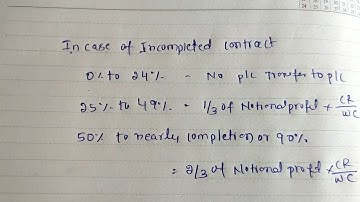 In case of Incompleted contract
0% to 24% - No plc Transfer to plc
25% to 49% = 1/3 of Notional profit × CR/WC
50% to nearly completion or 90%.
= 2/3 of Notional profit × CR/WC